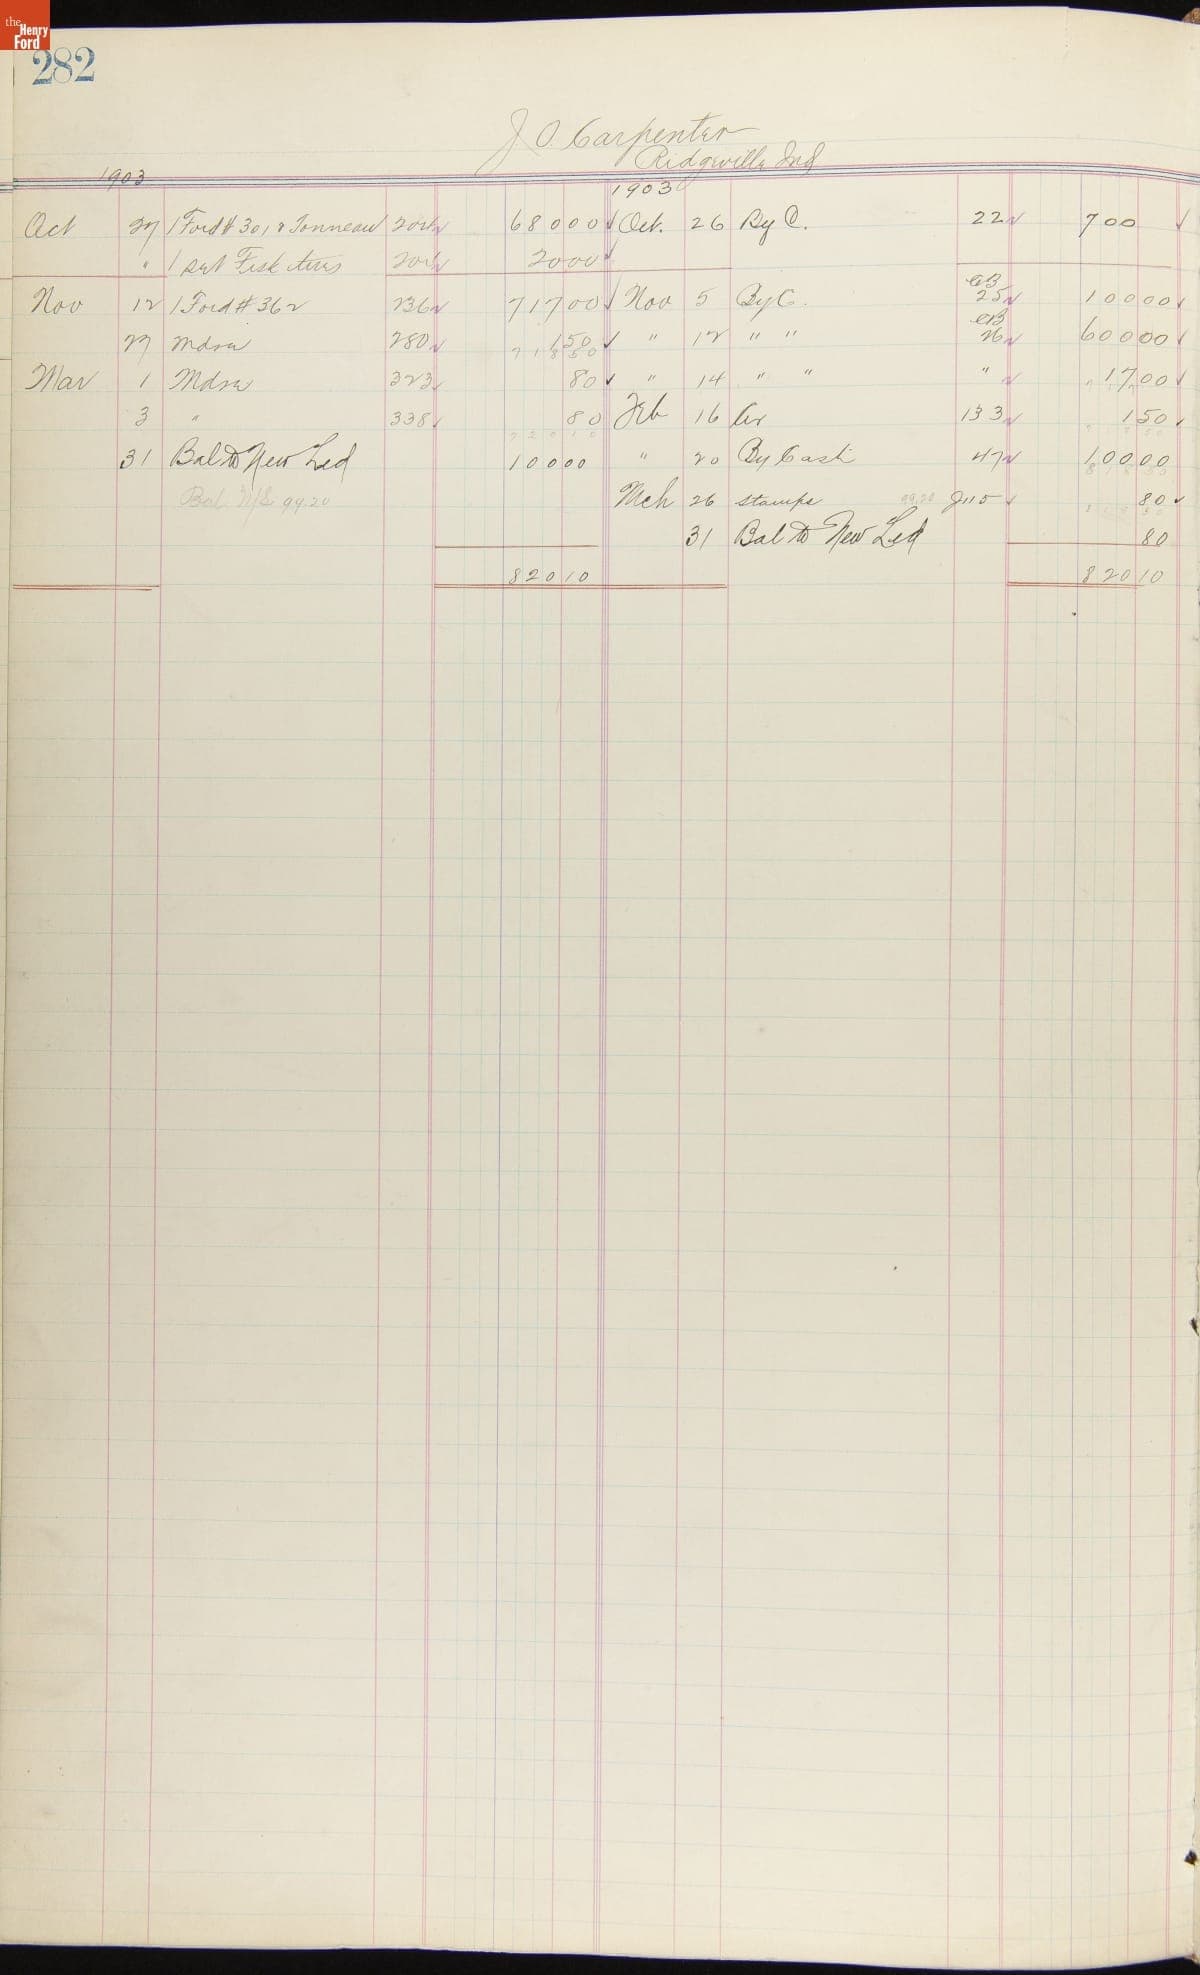 the Henry Ford
282
J O. Carpenter
Ridgeville Ind
1903 1903
Oct 27 1 Ford # 301 & Tonneau 204 680 00 Oct. 26 By C. 22 700
" 1 set Fisk tires 204 20 00
Nov 12 1 Ford # 362 236 717 00 Nov 5 By C. CB 25 100 00
27 Mdse 280 1 50 " 12 " " CB 26 600 00
718 50
Mar 1 Mdse 323 80 " 14 " " " 17 00
3 " 338 80 Feb 16 133 1 50
720 10
31 Bal to New Led 100 00 " 20 By Cash 47 100 00
818 50
Bal 99.20 Mch 26 stamps 99.20 J115 80
31 Bal to New Led 80
820 10 820 10